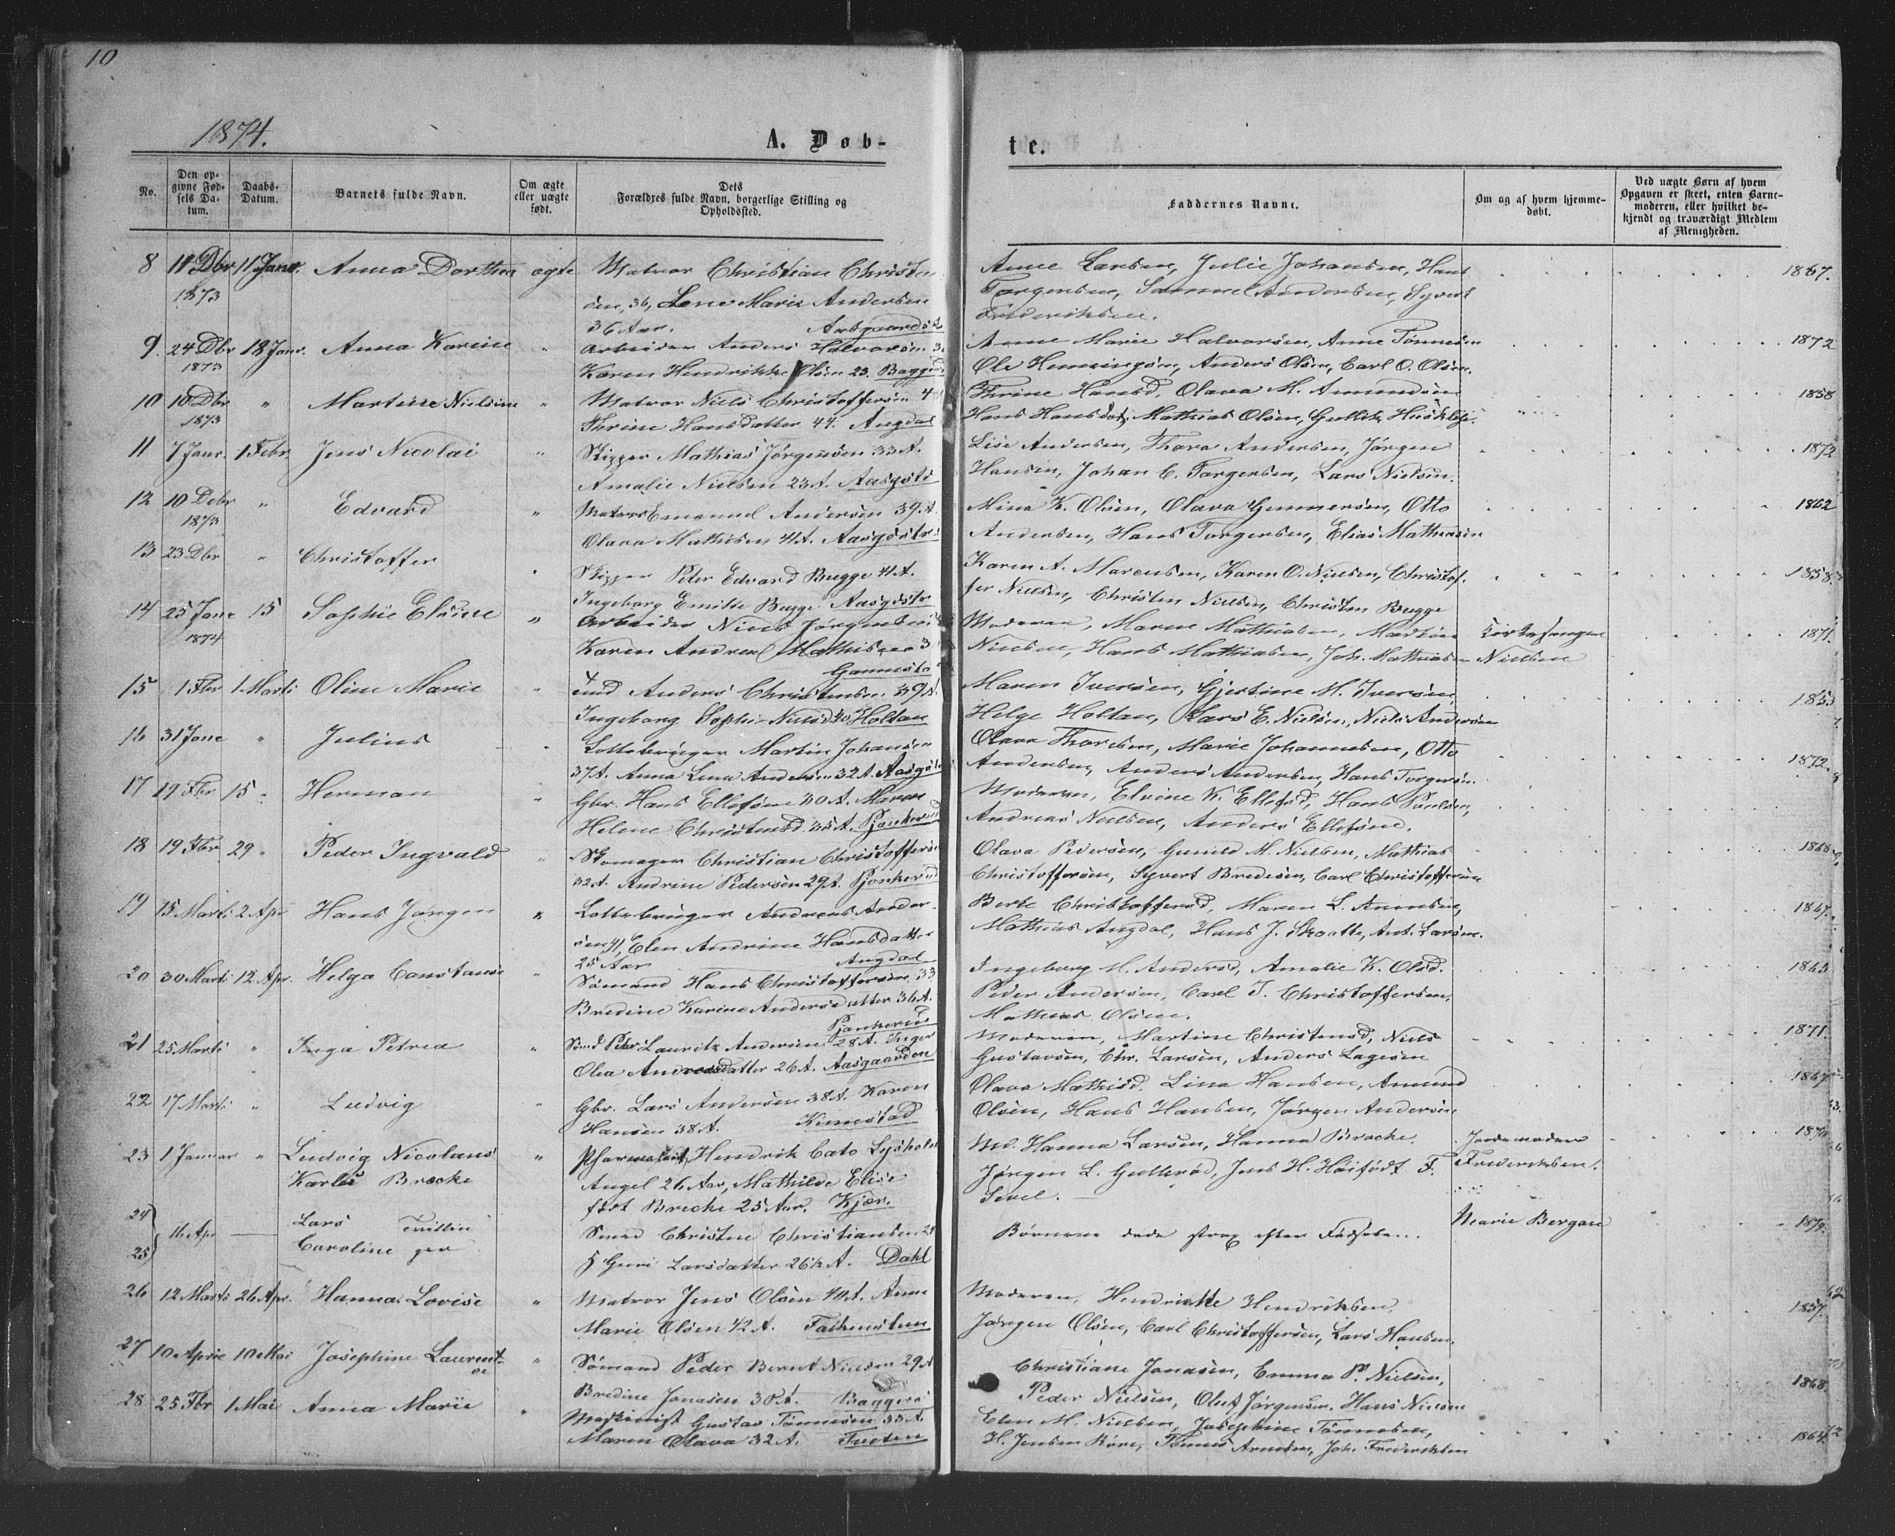 10
1874.
A. Døb-
te.
No.
Den op-
givne Fød-
sels Da-
tum.
Daabs-
Datum.
Barnets fulde Navn.
Om ægte
eller uægte
født.
Dets
Forældres fulde Navn, borgerlige Stilling og
Opholdssted.
Faddernes Navne.
Om og af hvem hjemme-
døbt.
Ved uægte Børn af hvem
Opgaven er skeet, enten Barne-
moderen, eller hvilket be-
kjendt og troværdigt Medlem
af Menigheden.
8 11 Dbr 11 Janr. Anna Dorthea ægte Matros Christian Christen
1873 sen, 36, Lene Marie Andersen
36 Aar. Aasgaards
Anne Larsen, Julie Johansen, Hans 1867.
Torgersen, Samuel Andersen, Syvert
Frederiksen.
9 24 Dbr 18 Janr. Anna Karine " Arbeider Anders Halvorsen
1873 Karen Hendrikke Olsen 23. Bagger
Anne Marie Halvorsen, Anne Tønnesen 1872
Ole Henningsen, Anders Olsen, Carl O. Olsen.
10 10 Dbr " Martine Nielsine " Matros Niels Christoffersen
1873 Thrine Hansdatter 44. Angdal
Thrine Hansd, Olava M. Amundsen 1858
Hans Hansen, Mathias Olsen,
11 7 Janr. 1 Febr. Jens Nicolai " Skipper Mathias Jørgensen 33 A.
Amalie Nielsen 23 A. Aasgsts
Lise Andersen, Thora Andersen, Jørgen 1872
Hansen, Johan C. Torgersen, Lars Nielsen.
12 10 Debr " Edvard " Matros Emanuel Andersen 39 A.
1873 Olava Mathisen 41 A. Aasgdstr
Mina K. Olsen, Olava Gunnersen, Otto 1862
Andersen, Hans Torgersen, Elias Mathiesen
13 23 Dbr " Christoffer " Skipper Peter Edvard Bugge 41 A.
Ingeborg Emilie Bugge Aasgdstr
Karen A. Marcusen, Karen O. Nielsen, Christof- 1858
fer Nielsen, Christen Nielsen, Christen Bugge
14 25 Jane 15 Sophie Elvine " Arbeider Niels Jørgensen
1874 Karen Andrea Mathisen
Gannestad
Moderen, Maren Mathiasen, Martin Kirkesanger 1871.
Nielsen, Hans Mathiasen, Joh. Mathiasen Nielsen
15 1 Fbr 1 Marti Oline Marie " Anders Christensen 49 A.
Ingeborg Sophie Nielsd 40 Holtan
Maren Iversen, Gjertine M. Iversen, 1853
Helge Holtan, Lars E. Nielsen, Niels Andersen
16 31 Jane " Julius " Lottebruger Martin Johansen
37 A. Anna Lena Andersen 32 A. Aasgst
Olava Thoresen, Marie Johannesen, Otto 1872.
Andersen, Anders Andersen, Hans Torgersen.
17 19 Fbr 15 " Herman " Gbr. Hans Ellefsen 40 A. Maren
Helene Christensd. 35 A. Pjonkerud
Moderen, Elvine K. Ellefsd, Hans Paulsen,
Andreas Nielsen, Anders Ellefsen.
18 19 Fbr 29 " Peder Ingvald " Skomager Christian Christoffersen
32 A. Andrine Pedersen 29 A. Pjonkerud
Olava Pedersen, Gunild M. Nielsen, Mathias 1868
Christoffersen, Syvert Bredesen, Carl Christoffersen
19 15 Marti 2 Apr Hans Jørgen " Lottebruger Andreas Ander-
sen 41, Elen Andrine Hansdatter
25 Aar Angdal
Berte Christoffersd, Maren L. Annesen, 1867.
Mathias Angdal, Hans J. Skaatte, Ant. Larsen.
20 30 Marti 12 Apr. Helga Constanse " Sømand Hans Christoffersen 33
Bredine Karine Andersdatter 36 A.
Pjonkerud
Ingeborg M. Andersd, Amalie K. Olsd. 1863
Peder Andersen, Carl J. Christoffersen,
Mathias Olsen.
21 25 Marti " Inga Petrea " Smd Peter Lauritz Andersen 28 A. Inger
Olea Andreasdatter 26 A. Aasgaarden
Moderen, Martine Christensd, Niels 1871.
Gustavsen, Chr. Larsen, Anders Lagesen
22 17 Marti " Ludvig " Gbr. Lars Andersen 38 A. Karen
Hansen 38 A. Kinnestad
Olava Mathisd. Lina Hansen, Amund 1867
Olsen, Hans Hansen, Jørgen Andersen
23 1 Januar " Ludvig Nicolaus " Pharmaceut Hendrik Cato Lysholm
Karlus Bræcke Angel 26 Aar, Mathilde Elise
født Brecke 25 Aar. Kjær.
Md. Hanna Larsen, Hanna Bræcke, Jordemoder
Jørgen L. Gullerød, Jens H. Høifødt F. Frederiksen.
Sevel.
24 16 Apr Lars Tvillin Smnd Christen Christiansen
25 Caroline ger Guri Larsdatter 26½ A. Dahl
Børnene døde strax efter Fødselen. Marie Bergan
26 12 Marts 26 Apr. Hanna Lovise " Matros Jens Olsen 40 A. Anne
Marie Olsen 42 A. Falkensten
Moderen, Hendriette Hendriksen, 1857.
Jørgen Olsen, Carl Christoffersen, Lars Hansen.
27 10 Aprie 10 Mai Josephine Laurent- " Sømand Peder Bernt Nielsen 29 A
Bredine Jonasen 30 A. Baggerød
Christiane Jonasen, Emma P. Nielsen, 1868
Peder Nielsen, Oluf Jørgensen, Hans Nielsen
28 25 Fbr 1 Mai Anna Marie " Maskinist Gustav Tønnesen 33 A.
Maren Olava 32 A.
Elen M. Nielsen, Josephine Tønnesen, 1864.
H. Jensen Røre, Tønnes Arnesen, Joh. Frederiksen